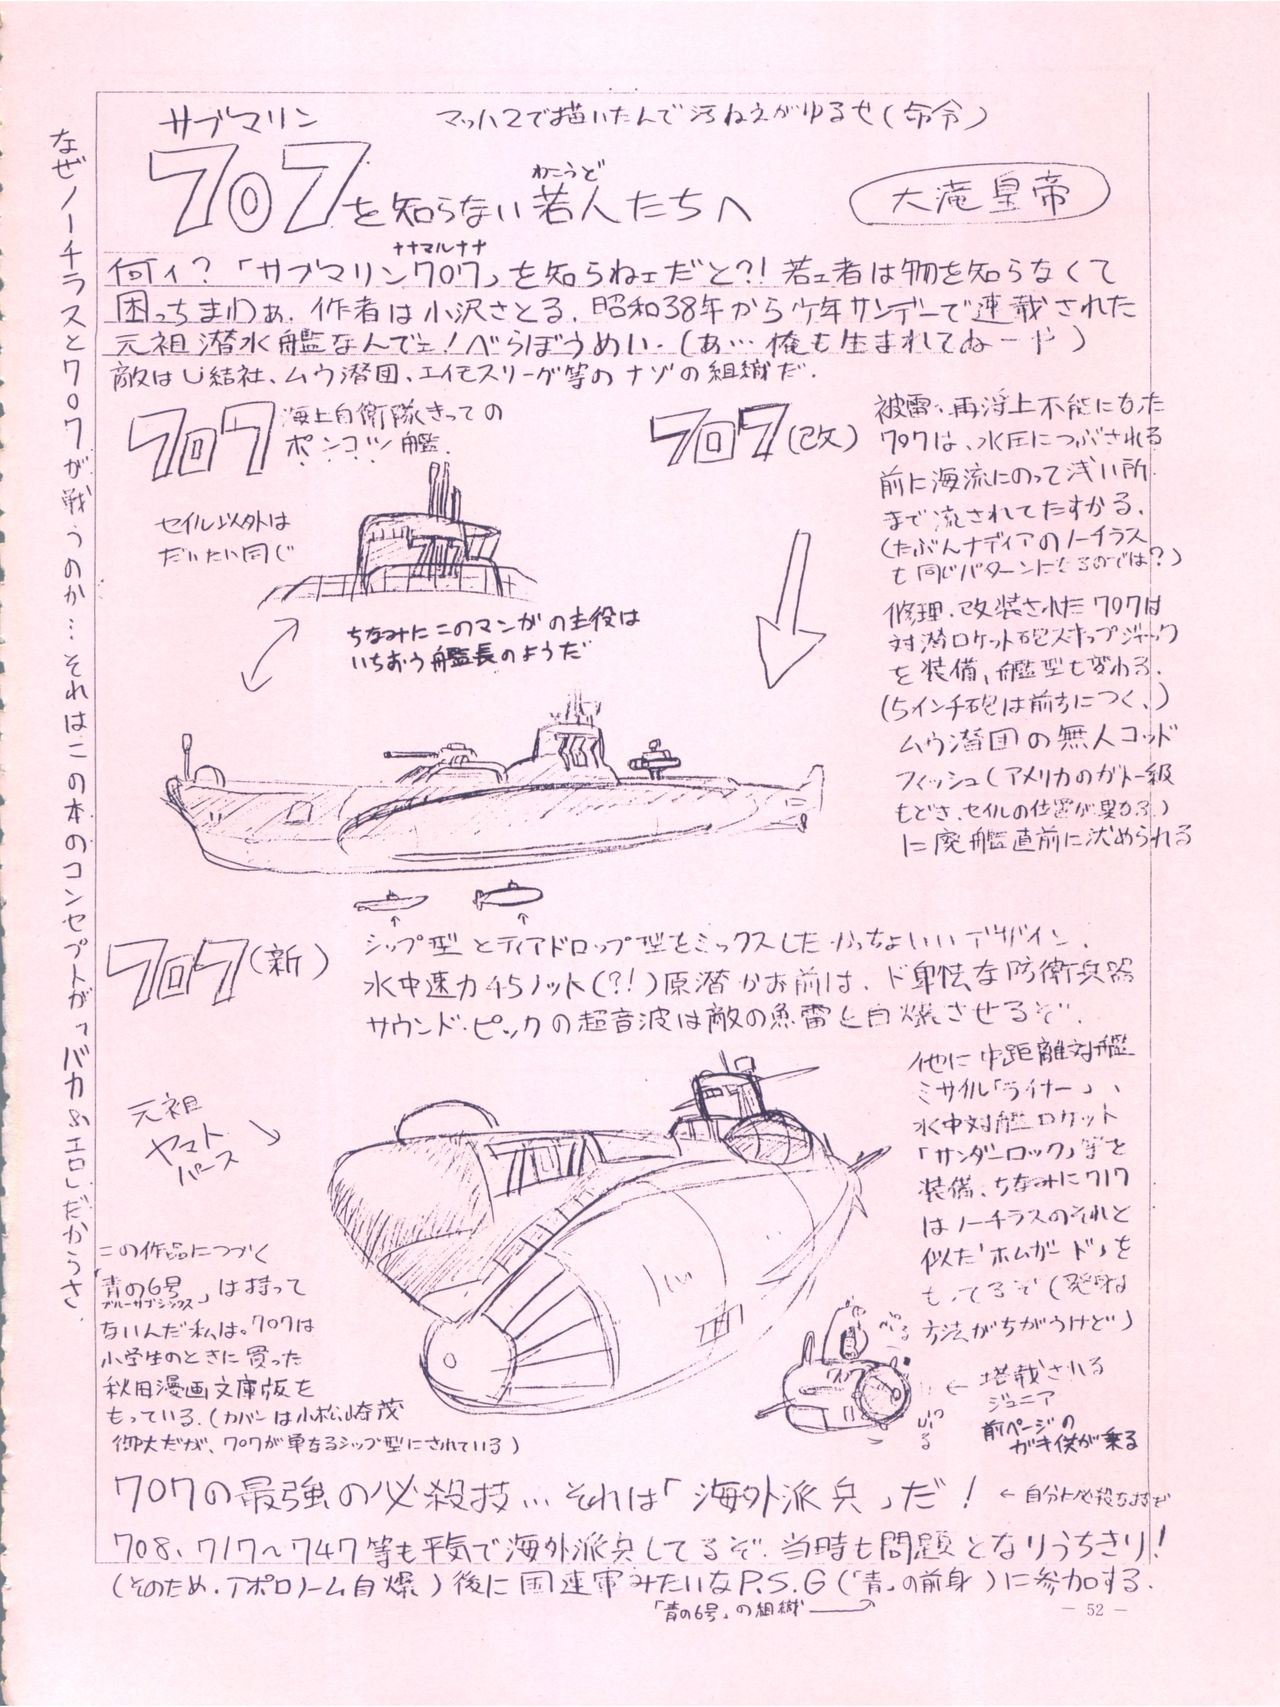 サブマリン
マッハ2で描いたんで汚ねえがゆるせ(命令)
707を知らない若人たちへ
わこうど
大滝皇帝
ナナマルナナ
何ィ?「サブマリン707」を知らねェだと?!若ェ者は物を知らなくて
困っちまわぁ.作者は小沢さとる.昭和38年から少年サンデーで連載された
元祖潜水艦なんでェ!べらぼうめい.(あ…俺も生まれてねーや)
敵はU結社、ムウ潜団、エイモスリーグ等のナゾの組織だ.
なぜノーチラスと707が戦うのか…それはこの本のコンセプトが「バカ&エロ」だからさ.
707
海上自衛隊きっての
ポンコツ艦.
セイル以外は
だいたい同じ
ちなみにこのマンガの主役は
いちおう艦長のようだ
707(改)
被雷、再浮上不能になった
707は、水圧につぶされる
前に海流にのって浅い所
まで流されてたすかる.
(たぶんナディアのノーチラス
も同じパターンになるのでは?)
修理・改装された707は
対潜ロケット砲スキップジャック
を装備、艦型も変わる.
(5インチ砲は前方につく、)
ムウ潜団の無人コッド
フィッシュ(アメリカのガトー級
もどき、セイルの位置が異なる)
に廃艦直前に沈められる
707(新)
シップ型とティアドロップ型をミックスしたかっちょいいデザイン.
水中速力45ノット(?!)原潜かお前は、ド卑怯な防衛兵器
サウンド・ピックの超音波は敵の魚雷を自爆させるぞ.
元祖
ヤマト
パース
他に中距離対艦
ミサイル「ライナー」、
水中対艦ロケット
「サンダーロック」等を
装備、ちなみに717
はノーチラスのそれと
似た「ホムガード」を
もってるぞ(発射
方法がちがうけど)
この作品につづく
「青の6号」は持って
ブルーサブシックス
ないんだ私は。707は
小学生のときに買った
秋田漫画文庫版を
もっている.(カバーは小松崎茂
御大だが、707が単なるシップ型にされている)
707
← 塔載される
ジュニア
前ページの
ガキ供が乗る
707の最強の必殺技…それは「海外派兵」だ!
708、717~747等も平気で海外派兵してるぞ.当時も問題となりうちきり!
(そのため、アポロノーム自爆)後に国連軍みたいなP.S.G(「青」の前身)に参加する.
「青の6号」の組織
― 52 ―